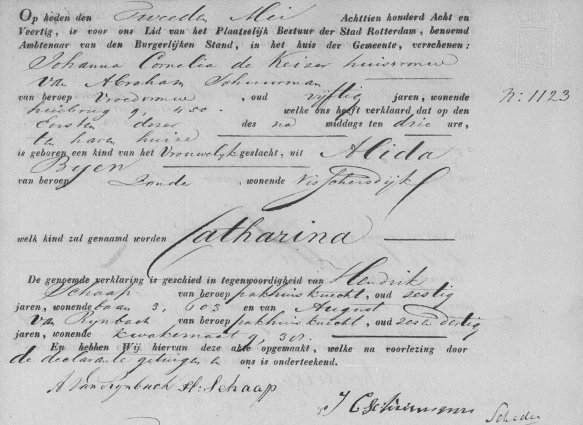 Op heden den Tweeden Mei Achttien honderd Acht en
Veertig, is voor ons Lid van het Plaatselijk Bestuur der Stad Rotterdam, benoemd
Ambtenaar van den Burgerlijken Stand, in het huis der Gemeente, verschenen:
Johanna Cornelia de Keizer huisvrouw
van Abraham Schuurman
van beroep Vroedvrouw, oud vijftig jaren, wonende
welke ons heeft verklaard dat op den
Eersten dezer des na middags ten drie ure,
ten haren huize
is geboren een kind van het Vrouwelijk geslacht, uit Alida
Byen
van beroep Zonder, wonende Visschersdijk
welk kind zal genaamd worden Catharina
De genoemde verklaring is geschied in tegenwoordigheid van Hendrik
Schaap van beroep pakhuisknecht, oud zestig
jaren, wonende baan 3, 603 en van August
van Rynbach van beroep pakhuisknecht, oud zes en dertig
jaren, wonende
En hebben Wij hiervan deze akte opgemaakt, welke na voorlezing door
de declarante getuigen en ons is onderteekend.
A Van Rynbach H: Schaap
J C Schuurman
N: 1123